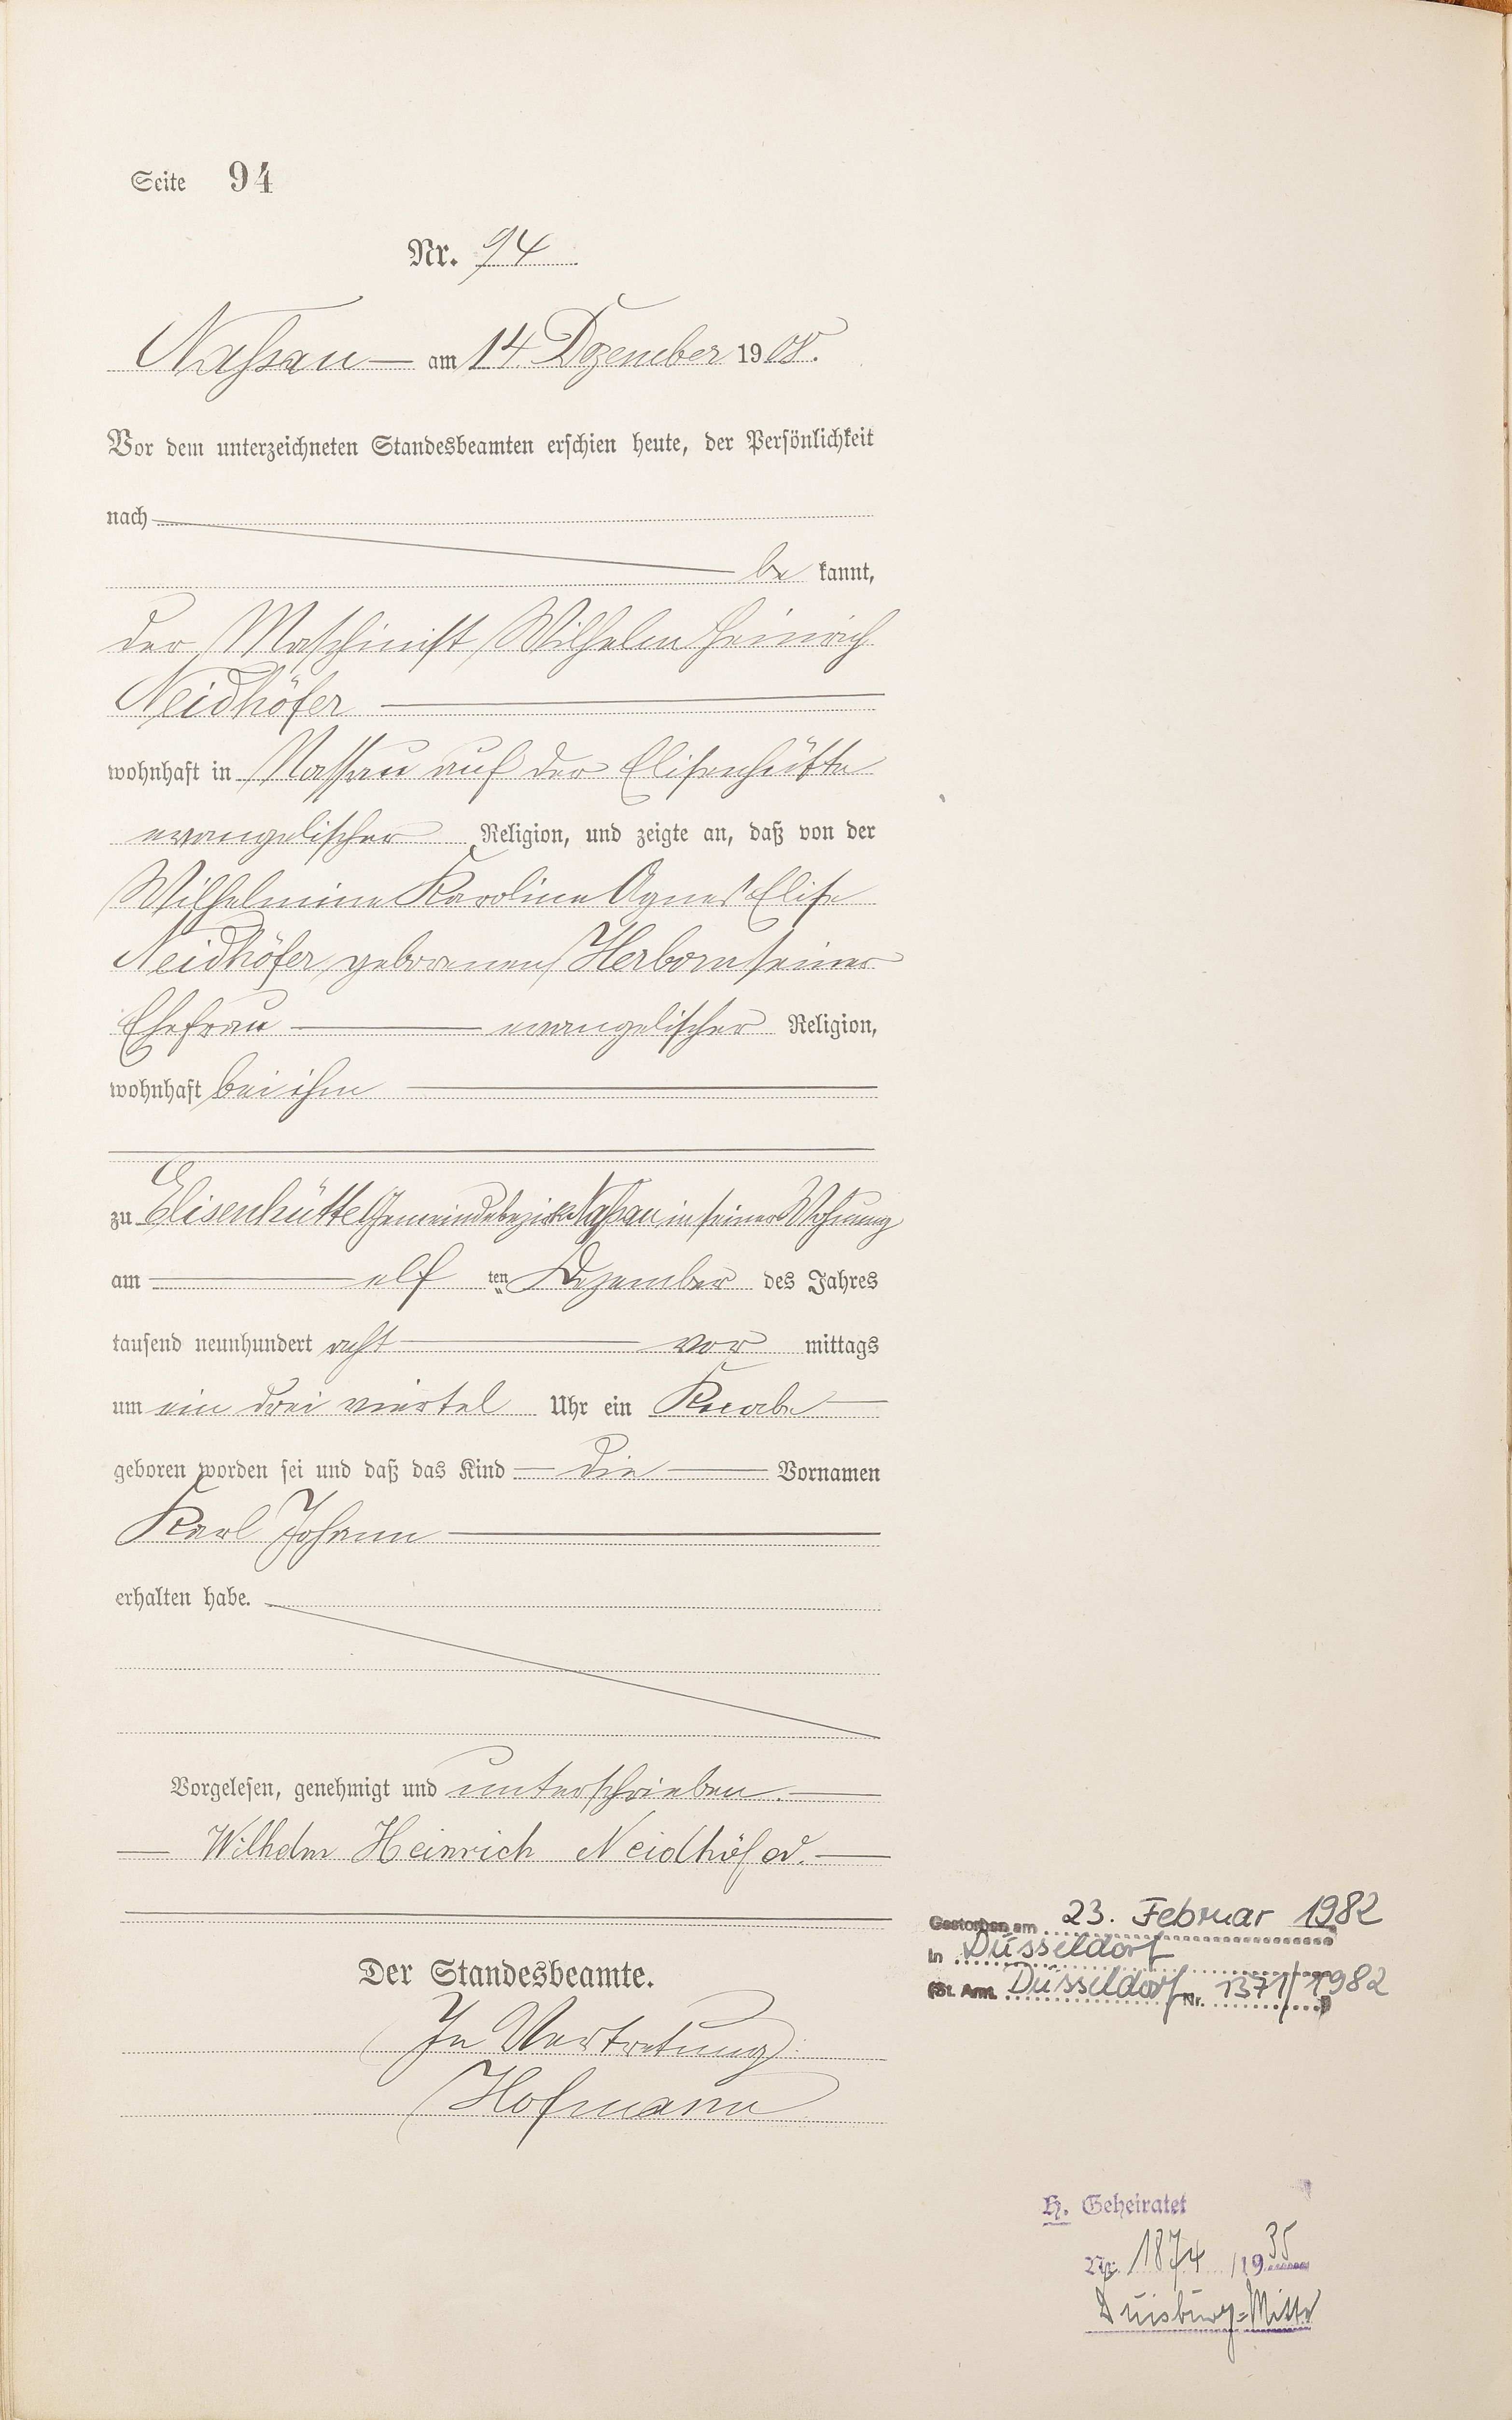 Seite 94
Nr. 94
Nassau am 14. Dezember 1908.
Vor dem unterzeichneten Standesbeamten erschien heute, der Persönlichkeit
nach
be kannt,
der Maschinist Wilhelm Heinrich
Neidhöfer
wohnhaft in Nassau auf der Elisenhütte
evangelischer Religion, und zeigte an, daß von der
Wilhelmine Karoline Agnes Elise
Neidhöfer geborenen Herborn seiner
Ehefrau evangelischer Religion,
wohnhaft bei ihm
zu Elisenhütte Gemeindebezirk Naßau in seiner Wohnung
am elf ten Dezember des Jahres
tausend neunhundert acht vor mittags
um ein drei viertel Uhr ein Knabe
geboren worden sei und daß das Kind die Vornamen
Karl Johann
erhalten habe.
Vorgelesen, genehmigt und unterschrieben.
Wilhelm Heinrich Neidhöfer.
Der Standesbeamte.
In Vertretung:
Hofmann
Gestorben am 23. Februar 1982
in Düsseldorf
(St. Amt. Düsseldorf Nr. 1371/1982)
H. Geheiratet
Nr. 1874 /1935
Duisburg-Mitte